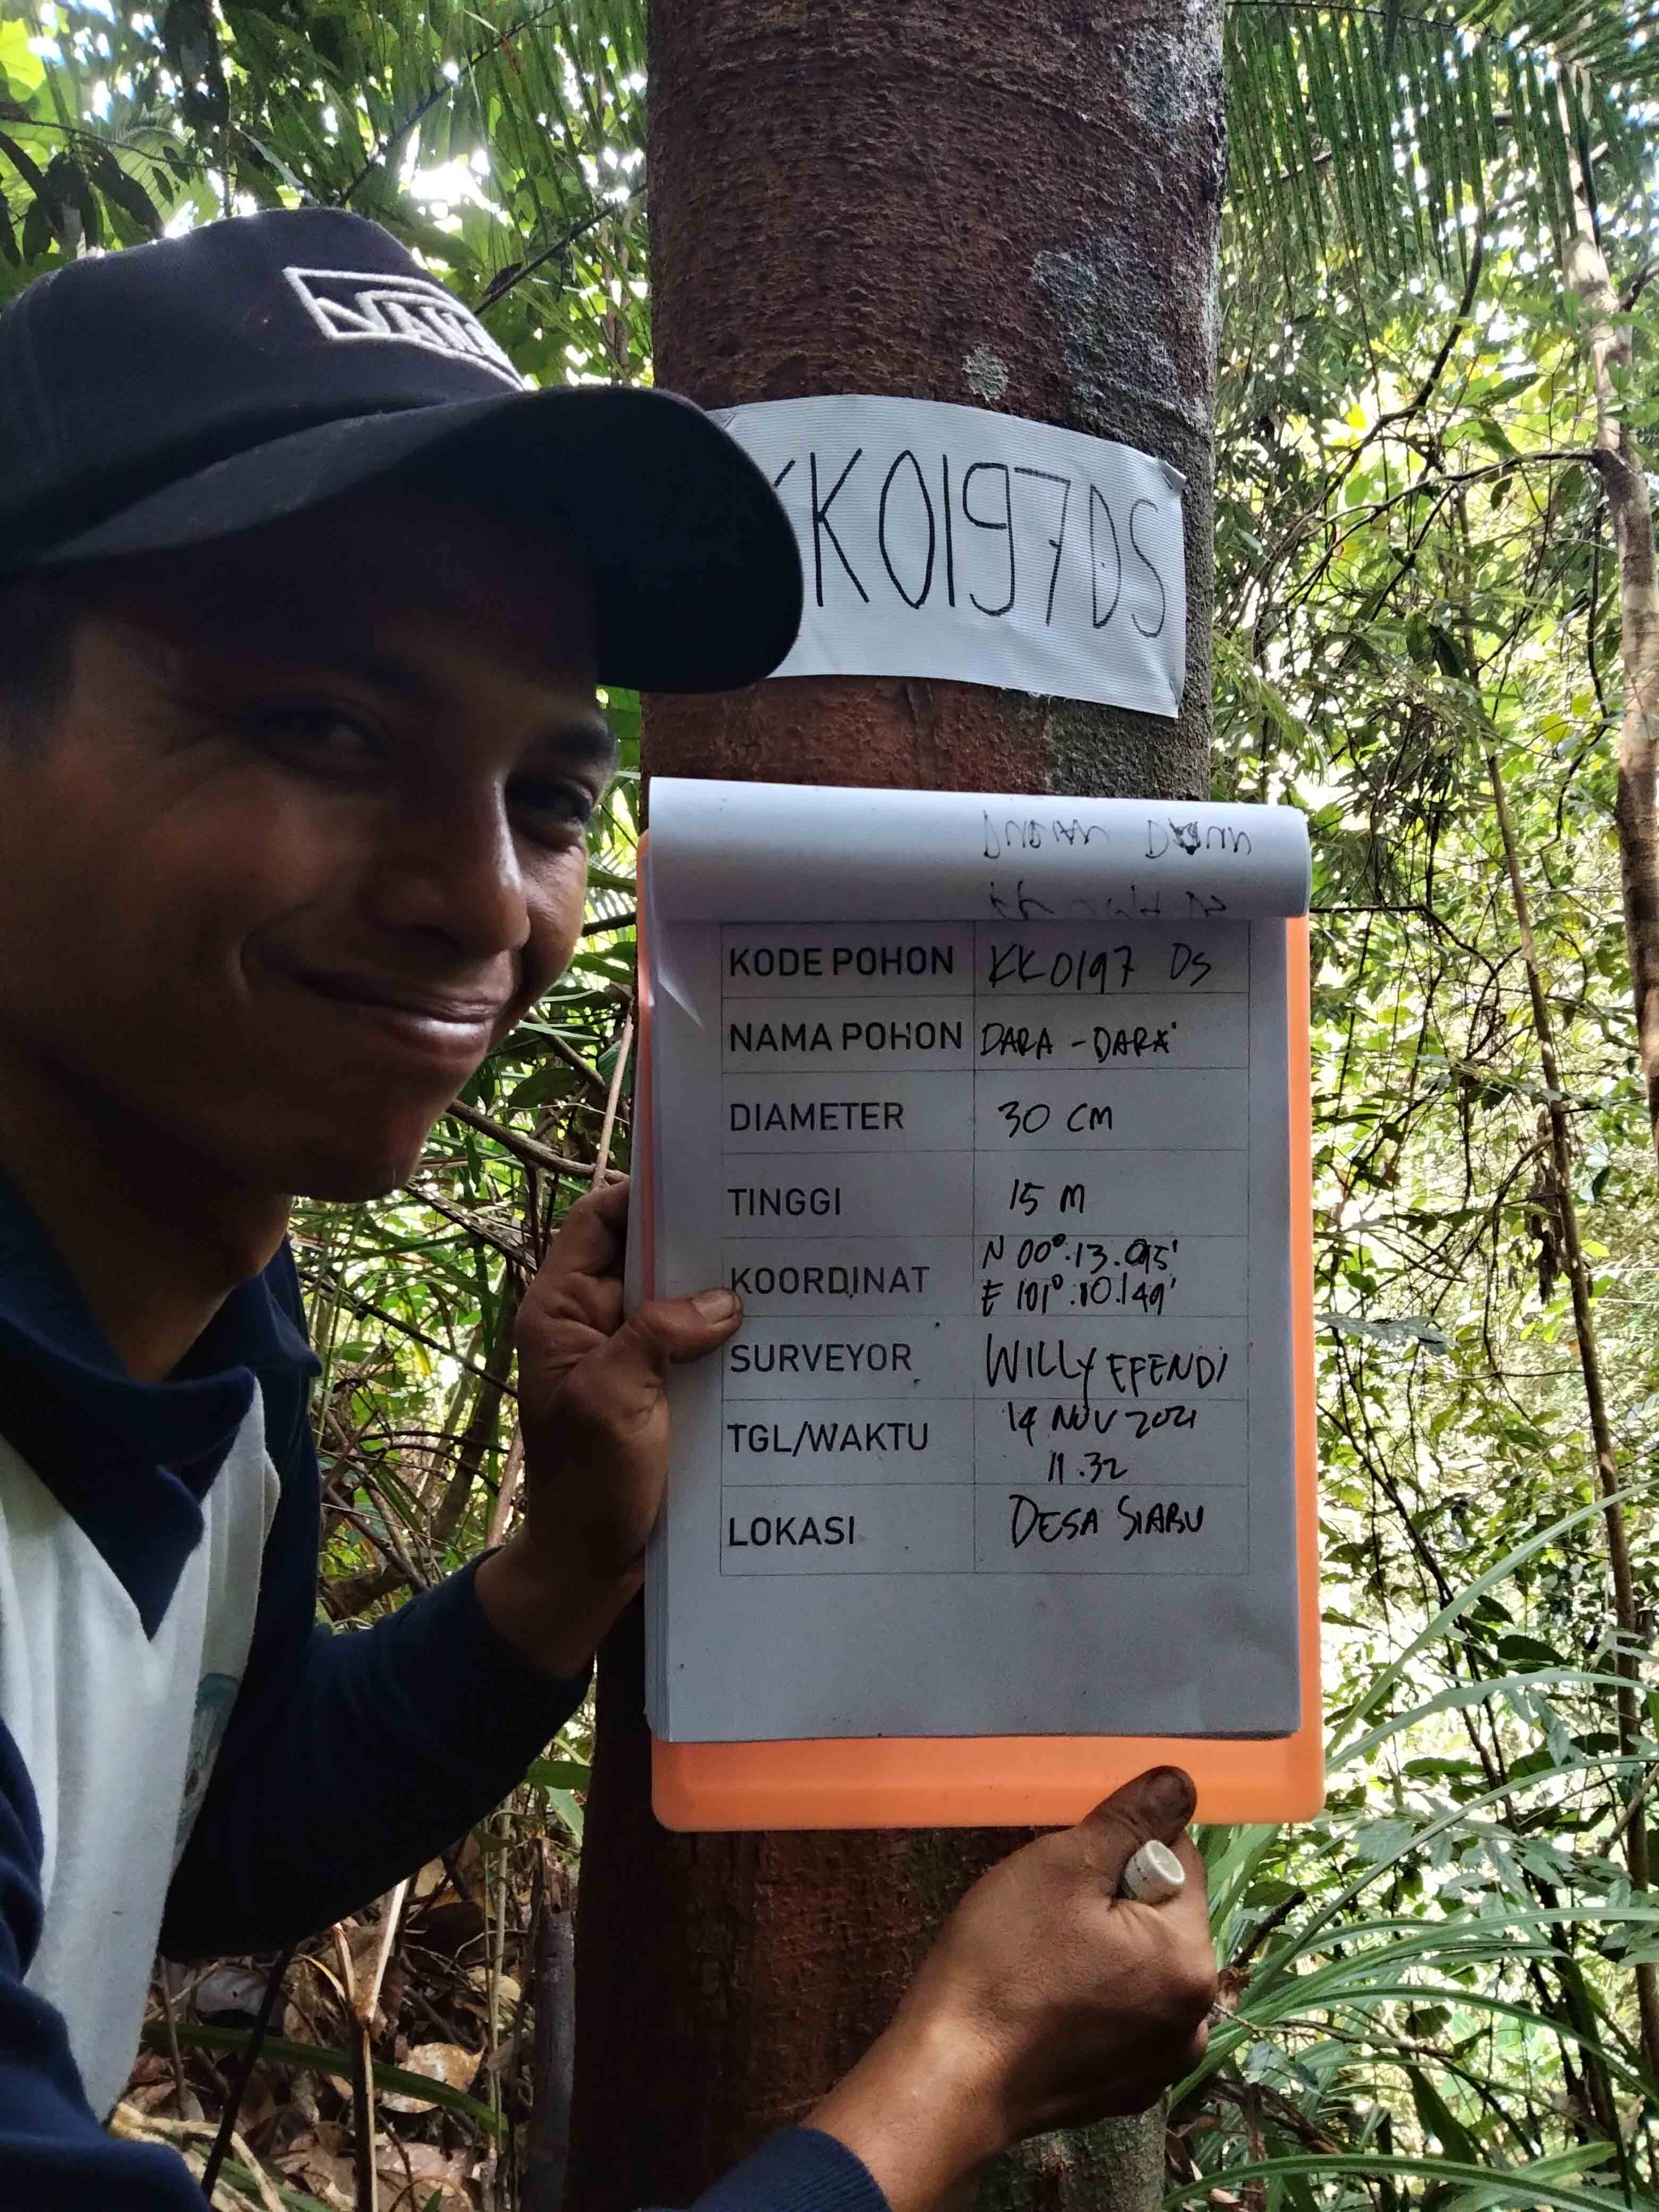 VANS
KK0197DS
KODE POHON KK0197 DS
NAMA POHON DARA - DARA'
DIAMETER 30 CM
TINGGI 15 M
KOORDINAT N 00°.13.095'
E 101°.10.149'
SURVEYOR WILLY EFENDI
TGL/WAKTU 14 NOV 2021
11.32
LOKASI DESA SIABU